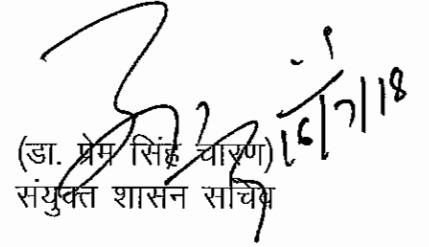 16/7/18
(डा. प्रेम सिंह चारण)
संयुक्त शासन सचिव